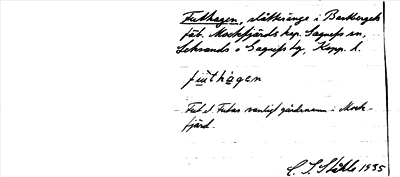 Futhagen, slåtteränge i Barkbergets
fäb. Mockfjärds kap. Gagnefs sn,
Leksands o Gagnefs tg, Kopp. l.
fúthàgen
Fut el. Futas vanligt gårdsnamn i Mock-
fjärd.
C. S. Ståhle 1935